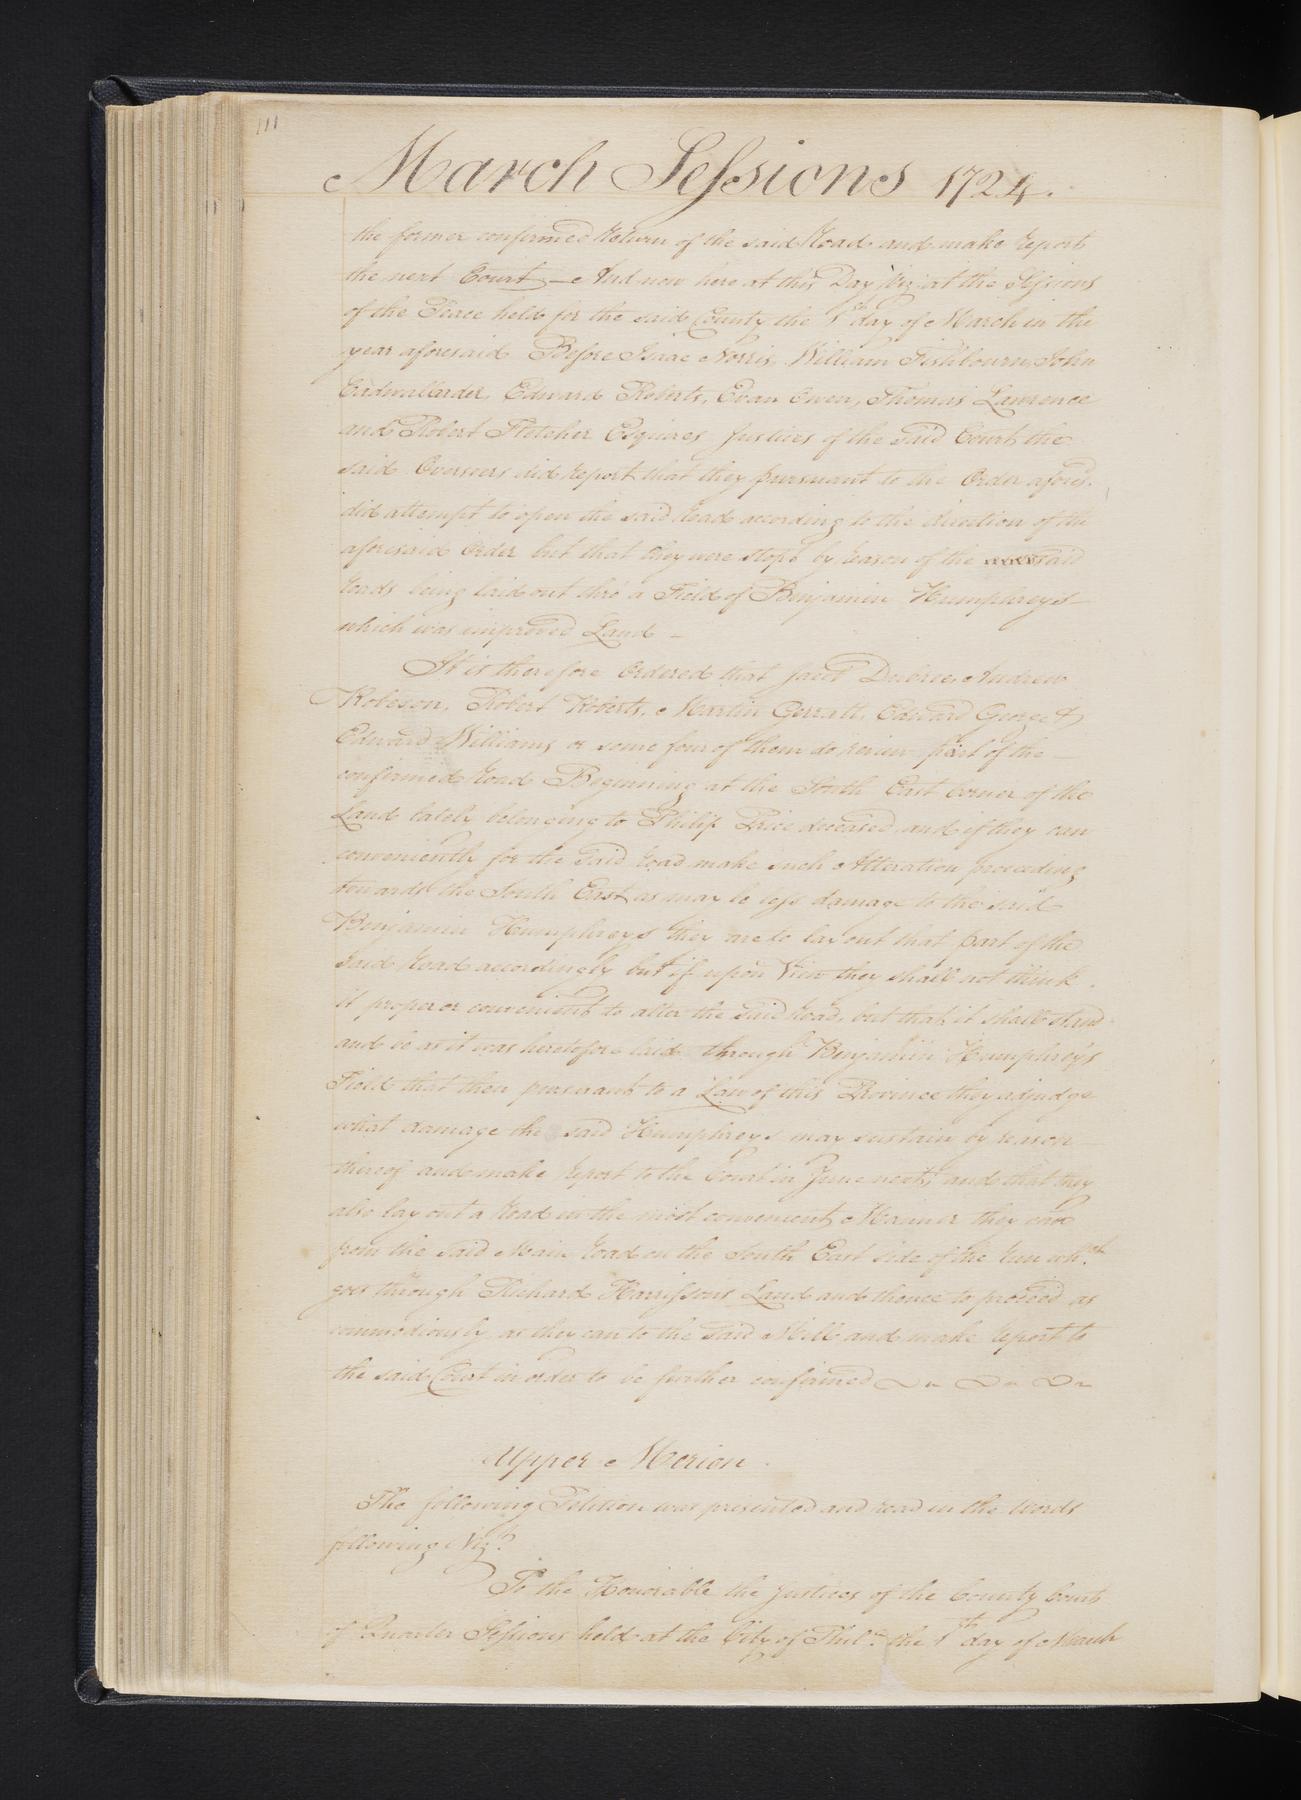 111
March Sessions 1724.
the former confirmed Return of the said Road and make report
the next Court — And now here at this Day Viz: at the Sessions
of the Peace held for the said County the day of March in the
year aforesaid Before Isaac Norris, William Fishbourn, John
Cadwallarder, Edward Roberts, Evan Owen, Thomas Lawrence
and Robert Fletcher Esquires Justices of the said Court the
said Overseers did report that they pursuant to the Order afores.
did attempt to open the said Road according to the direction of the
aforesaid Order but that they were stopt by reason of the said
roads being laid out thro' a Field of Benjamin Humphreys —
which was improved Land —
It is therefore Ordered that Jacob Dubree, Andrew
Robeson, Robert Roberts, Martin Gerratt, Edward George &
Edward Williams or some four of them do review part of the —
confirmed Road Beginning at the South East Corner of the
Land lately belonging to Philip Price deceased and if they can
conveniently for the said road make such Alteration proceeding
towards the South East as may be less damage to the said
Benjamin Humphreys they are to lay out that part of the
said Road accordingly but if upon View they shall not think
it proper or convenient to alter the said road, but that it shall stand
and be as it was heretofore laid through Benjamin Humphreys
Field that then pursuant to a Law of this Province they adjudge
what damage the said Humphreys may sustain by reason —
thereof and make report to the Court in June next, and that they
also lay out a Road in the most convenient Manner they can
from the said Main Road on the South East side of the Run wh.ch
goes through Richard Harrissons Land and thence to proceed as
commodiously as they can to the said Mill and make report to
the said Court in order to be further confirmed
Upper Merion
The following Petition was presented and read in the Words
following Viz.t
To the Honorable the Justices of the County Court
of Quarter Sessions held at the City of Phil.a the day of March